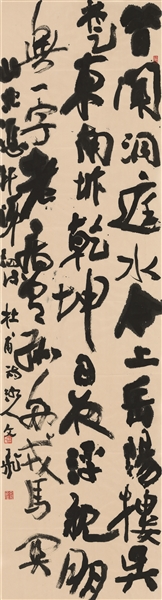 昔聞洞庭水今上岳陽樓吳
楚東南坼乾坤日夜浮親朋
無一字老病有孤舟戎馬關
山北憑軒涕泗流 杜甫詩